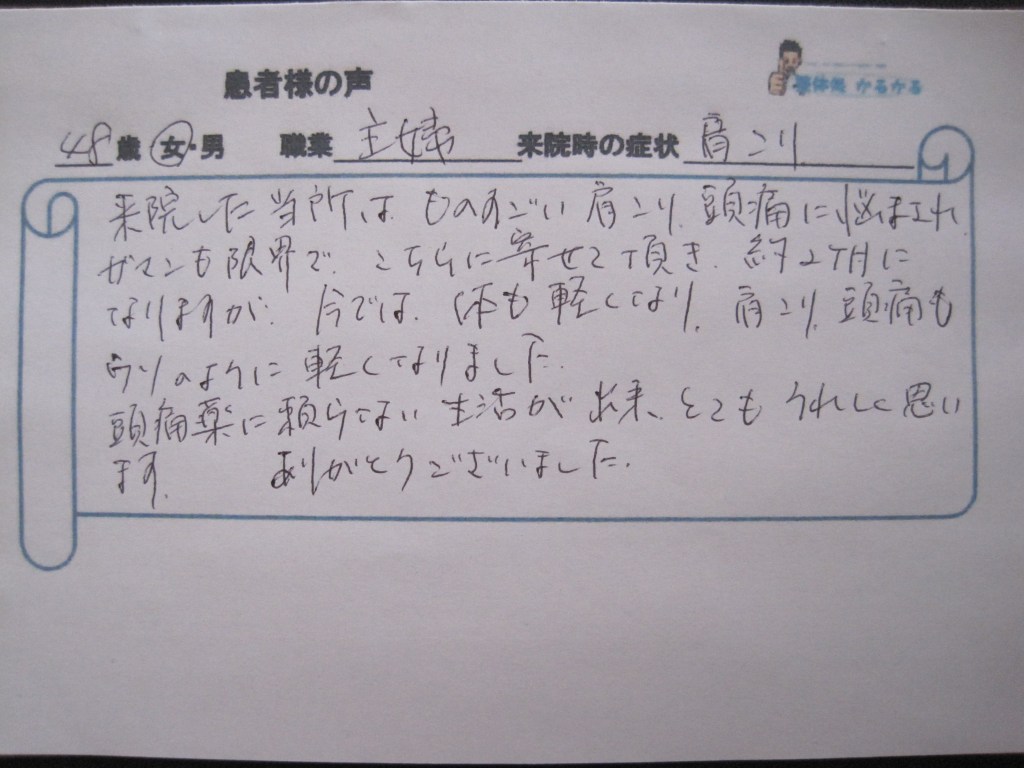 患者様の声
整体処 かるかる
48 歳 女・男 職業 主婦 来院時の症状 肩こり
来院した当所は ものすごい肩こり、頭痛に悩まされ、
ガマンも限界で、こちらに寄せて頂き、約2ケ月に
なりますが、今では、体も軽くなり、肩こり、頭痛も
ウソのように軽くなりました。
頭痛薬に頼らない生活が出来、とてもうれしく思い
ます。 ありがとうございました。